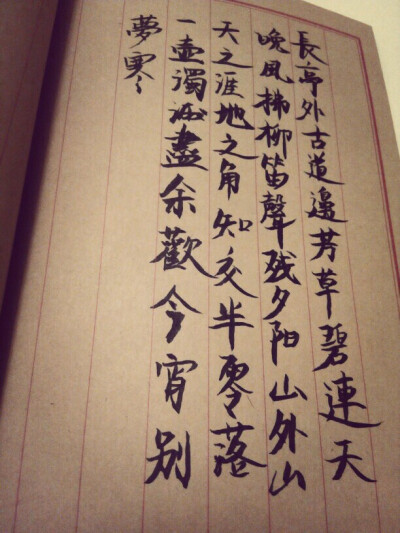 長亭外古道邊芳草碧連天
晚风拂柳笛聲残夕阳山外山
天之涯地之角知交半零落
一壺濁酒盡余歡今宵别
夢寒